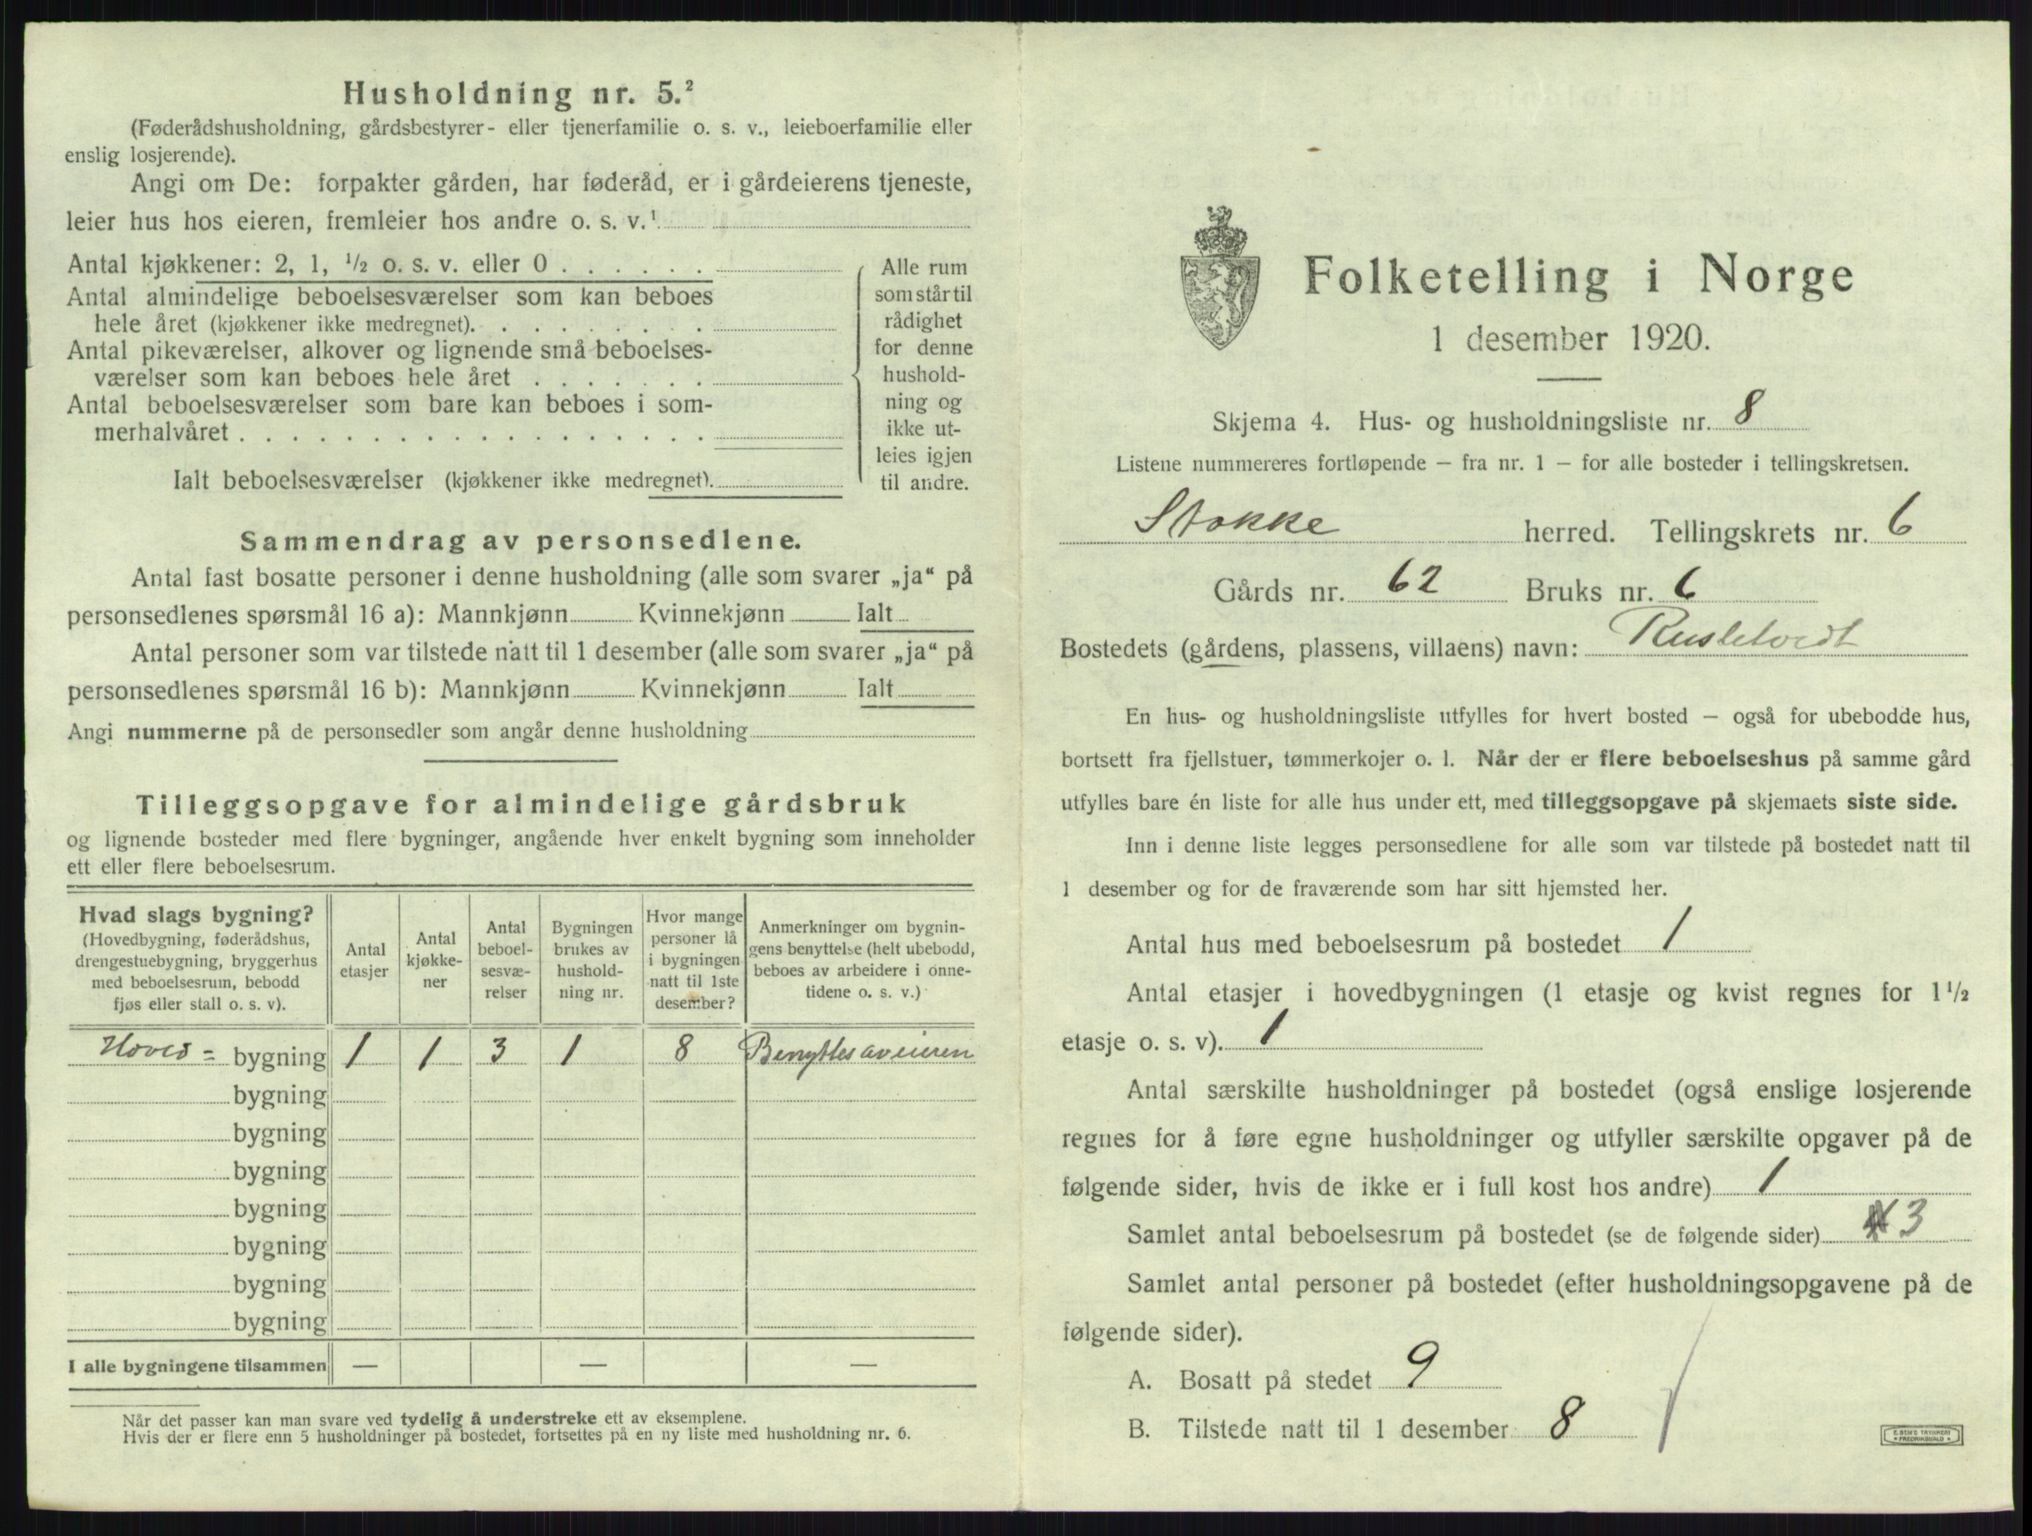 Husholdning nr. 5.²
(Føderådshusholdning, gårdsbestyrer- eller tjenerfamilie o. s. v., leieboerfamilie eller
enslig losjerende).
Angi om De: forpakter gården, har føderåd, er i gårdeierens tjeneste,
leier hus hos eieren, fremleier hos andre o. s. v.¹
Antal kjøkkener: 2, 1, ½ o. s. v. eller 0 . . . . . .
Antal almindelige beboelsesværelser som kan beboes
hele året (kjøkkener ikke medregnet). . . . . . . . .
Antal pikeværelser, alkover og lignende små beboelses-
værelser som kan beboes hele året . . . . . . .
Antal beboelsesværelser som bare kan beboes i som-
merhalvåret . . . . . . . . . . . . . . . . . .
Ialt beboelsesværelser (kjøkkener ikke medregnet).
Alle rum
som står til
rådighet
for denne
hushold-
ning og
ikke ut-
leies igjen
til andre.
Sammendrag av personsedlene.
Antal fast bosatte personer i denne husholdning (alle som svarer „ja“ på
personsedlenes spørsmål 16 a): Mannkjønn Kvinnekjønn Ialt
Antal personer som var tilstede natt til 1 desember (alle som svarer „ja“ på
personsedlenes spørsmål 16 b): Mannkjønn Kvinnekjønn Ialt
Angi nummerne på de personsedler som angår denne husholdning
Tilleggsopgave for almindelige gårdsbruk
og lignende bosteder med flere bygninger, angående hver enkelt bygning som inneholder
ett eller flere beboelsesrum.
Hvad slags bygning?
(Hovedbygning, føderådshus,
drengestuebygning, bryggerhus
med beboelsesrum, bebodd
fjøs eller stall o. s. v).
Antal
etasjer
Antal
kjøkke-
ner
Antal
beboel-
sesvæ-
relser
Bygningen
brukes av
hushold-
ning nr.
Hvor mange
personer lå
i bygningen
natt til 1ste
desember?
Anmerkninger om bygnin-
gens benyttelse (helt ubebodd,
beboes av arbeidere i onne-
tidene o. s. v.)
Hoved= bygning 1 1 3 1 8 Benyttes av eieren
bygning
bygning
bygning
bygning
bygning
bygning
bygning
I alle bygningene tilsammen — — —
Når det passer kan man svare ved tydelig å understreke ett av eksemplene.
Hvis der er flere enn 5 husholdninger på bostedet, fortsettes på en ny liste med husholdning nr. 6.
Folketelling i Norge
1 desember 1920.
Skjema 4. Hus- og husholdningsliste nr. 8
Listene nummereres fortløpende — fra nr. 1 — for alle bosteder i tellingskretsen.
Stokke herred. Tellingskrets nr. 6
Gårds nr. 62 Bruks nr. 6
Bostedets (gårdens, plassens, villaens) navn:
En hus- og husholdningsliste utfylles for hvert bosted — også for ubebodde hus,
bortsett fra fjellstuer, tømmerkojer o. l. Når der er flere beboelseshus på samme gård
utfylles bare én liste for alle hus under ett, med tilleggsopgave på skjemaets siste side.
Inn i denne liste legges personsedlene for alle som var tilstede på bostedet natt til
1 desember og for de fraværende som har sitt hjemsted her.
Antal hus med beboelsesrum på bostedet 1
Antal etasjer i hovedbygningen (1 etasje og kvist regnes for 1½
etasje o. s. v). 1
Antal særskilte husholdninger på bostedet (også enslige losjerende
regnes for å føre egne husholdninger og utfyller særskilte opgaver på de
følgende sider, hvis de ikke er i full kost hos andre) 1
Samlet antal beboelsesrum på bostedet (se de følgende sider) 3
Samlet antal personer på bostedet (efter husholdningsopgavene på de
følgende sider).
A. Bosatt på stedet 9
B. Tilstede natt til 1 desember 8